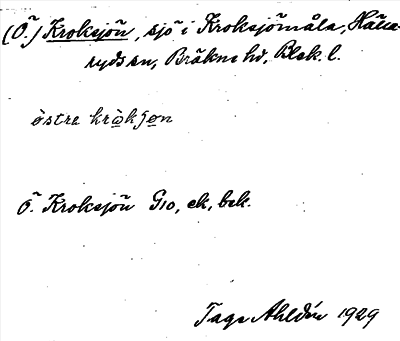 (Ö.) Kroksjön, sjö i Kroksjömåla, Hälla-
ryds sn, Bräkne hd, Blek. l.
östra krokʃøn
Ö. Kroksjön G10, ek, bek.
Tage Ahldén 1929